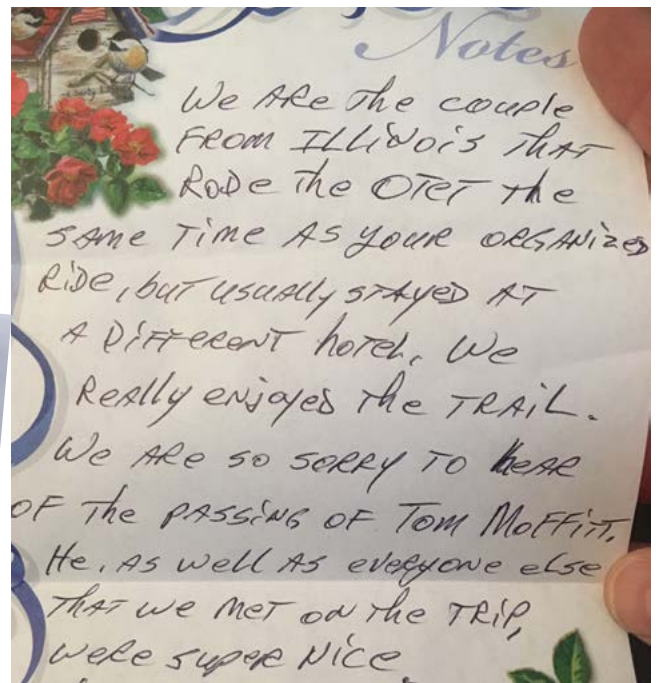 Notes
We are the couple
from Illinois that
rode the OTET the
same time as your organized
ride, but usually stayed at
a different hotel. We
really enjoyed the trail.
We are so sorry to hear
of the passing of Tom Moffitt.
He, as well as everyone else
that we met on the trip,
were super nice